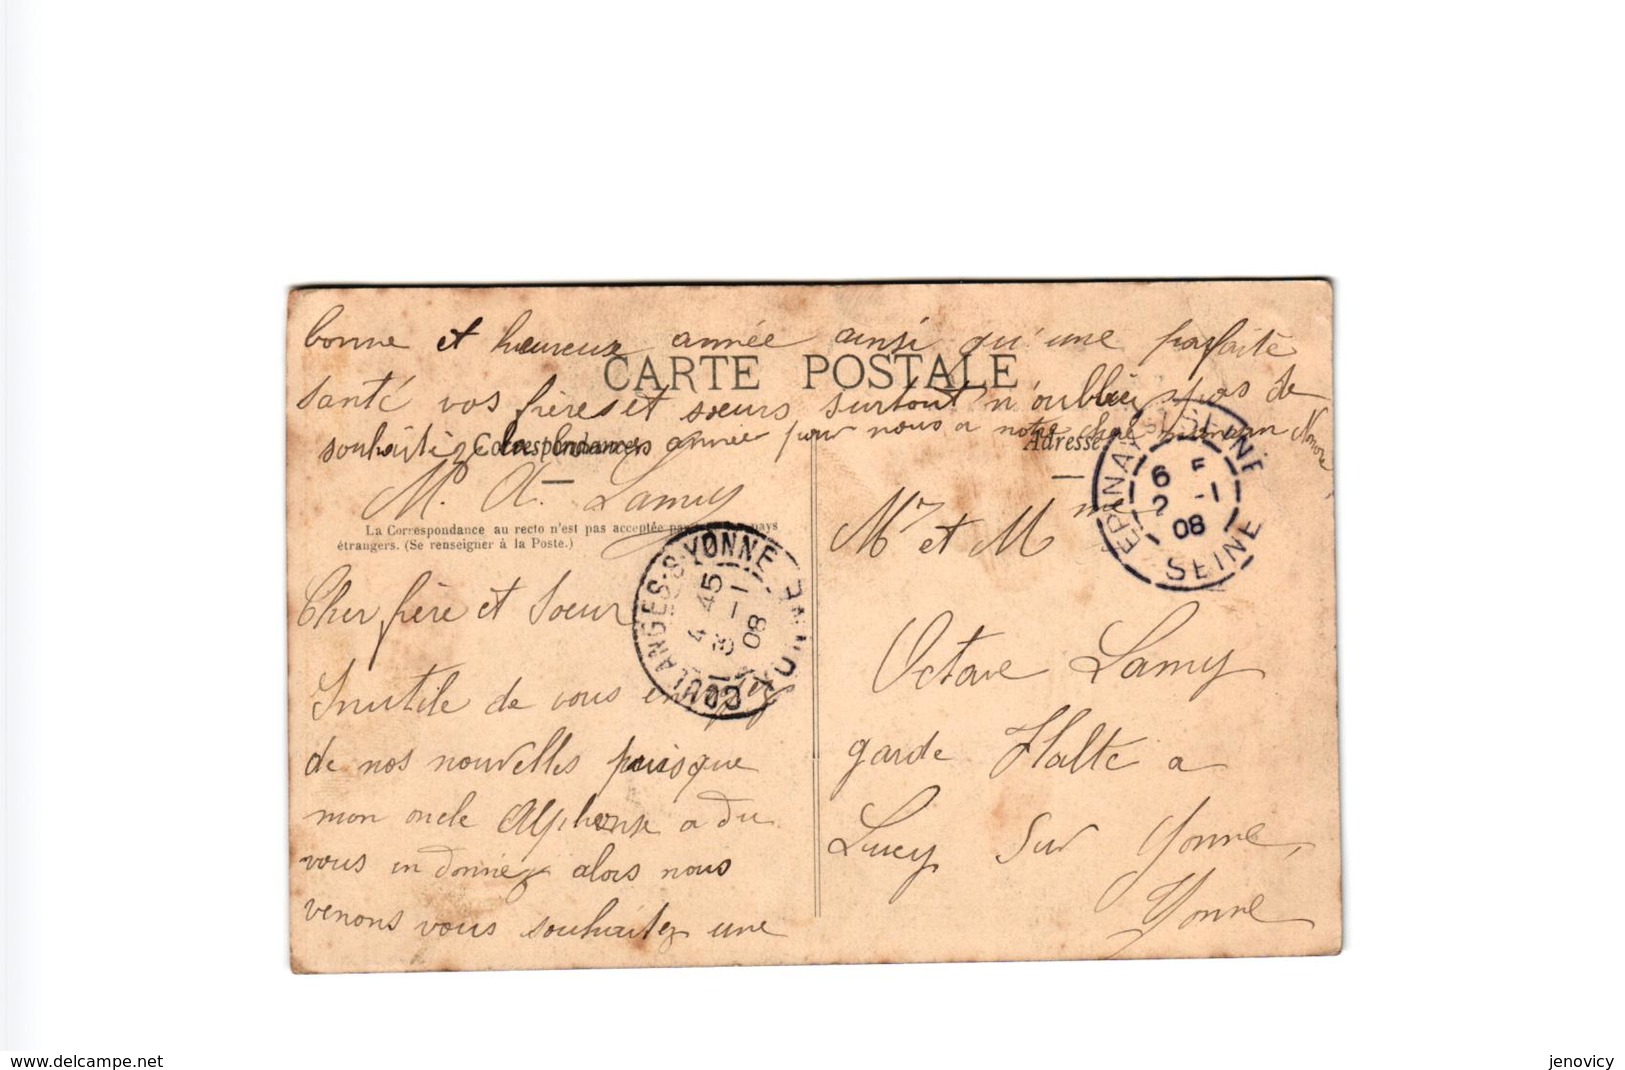 bonne et heureuse année ainsi qu'une parfaite
CARTE POSTALE
santé vos frères et sœurs surtout n'oubliez pas de
souhaitez la bonne année pour nous a notre maman
Correspondance
Adresse
M. A. Lamy
La Correspondance au recto n'est pas acceptée par pays
étrangers. (Se renseigner à la Poste.)
Cher frère et Soeur
Inutile de vous
de nos nouvelles puisque
mon oncle Alphonse a du
vous en donnez alors nous
venons vous souhaitez une
COULANGES-S-YONNE YONNE
4 45
3 -1
08
EPINAY-S-SEINE
6
2 -1
08
SEINE
Mr et Mme
Octave Lamy
garde Halte a
Lucy Sur Yonne,
Yonne
www.delcampe.net
jenovicy